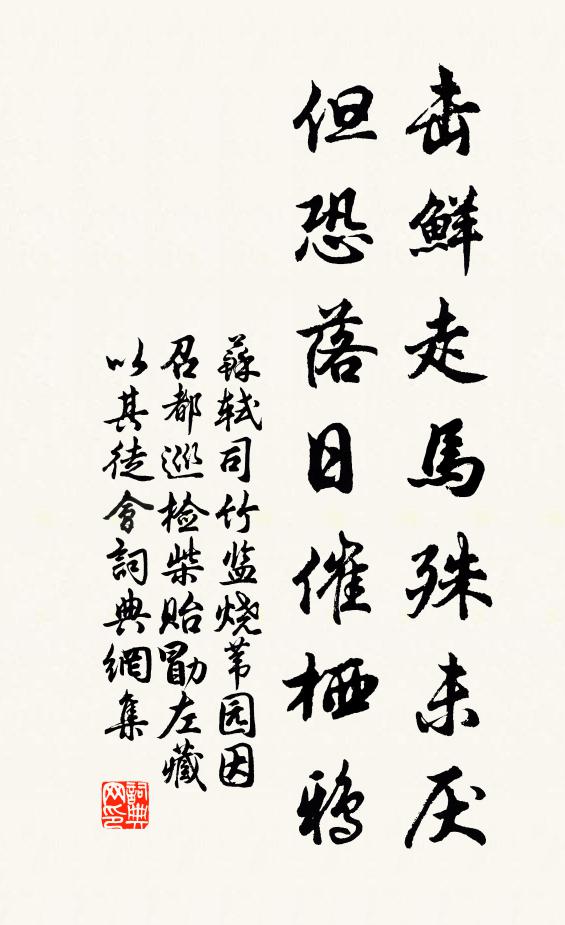 击鲜走馬殊未厌
但恐落日催栖鸦
蘇轼司竹监烧苇园因
召都巡检柴贻勖左藏
以其徒會詞典網集
詞典网印